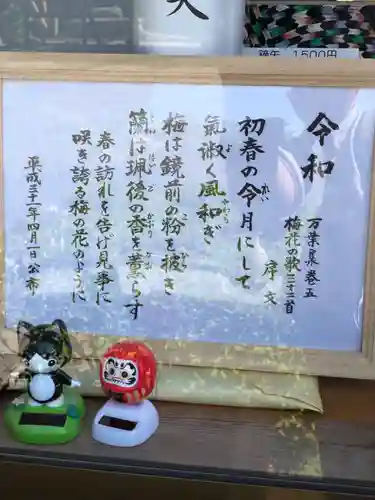 令和
万葉集巻五
梅花の歌三十二首
序文
初春の令月にして
氣淑く風和ぎ
梅は鏡前の粉を披き
蘭は珮後の香を薫らす
春の訪れを告げ見事に
咲き誇る梅の花のように
平成三十一年四月一日公布
鏑矢 1,500円